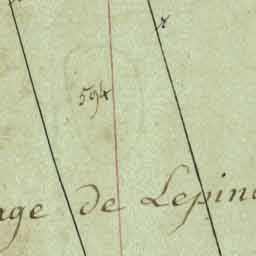 594
age de Lepin